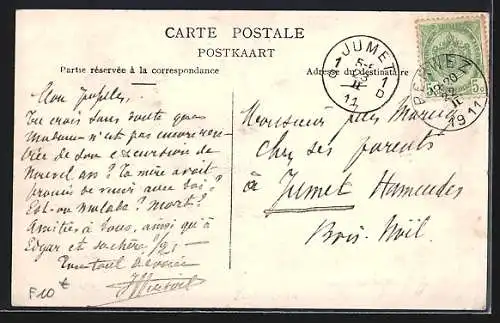 CARTE POSTALE
POSTKAART
Partie réservée à la correspondance
Adresse du destinataire
JUMET
1 5- 1
11
D D
19-20
22
II
1911
5 5c
Mon
Tu crois sans doute que
Madame n'est pas encore
de son excursion de
Nouvel an? Ta mère avait
promis de venir avec toi?
Est-on malade? Mort?
Amitiés à tous, ainsi qu'à
Edgar et sa chère
Ton tout dévoué
Monsieur Jules
Chez ses parents
à Jumet Hamendes
Bois-Noël
F10 €